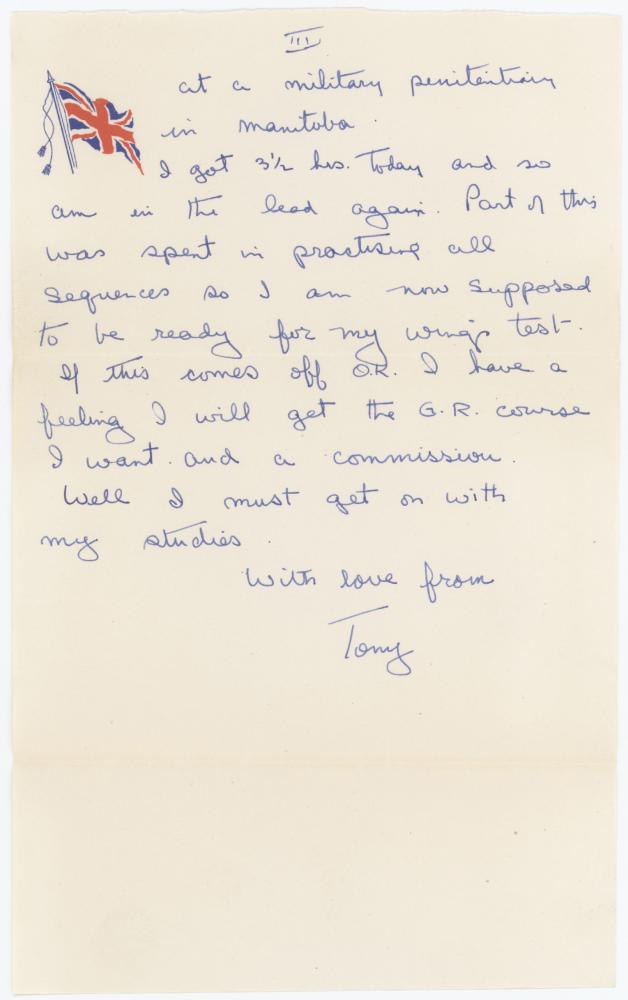 III
at a military penitentiary
in Manitoba.
I got 3½ hrs. Today and so
am in the lead again. Part of this
was spent in practising all
sequences so I am now supposed
to be ready for my wings test.
If this comes off O.K. I have a
feeling I will get the G.R. course
I want. and a commission.
Well I must get on with
my studies.
With love from
Tony